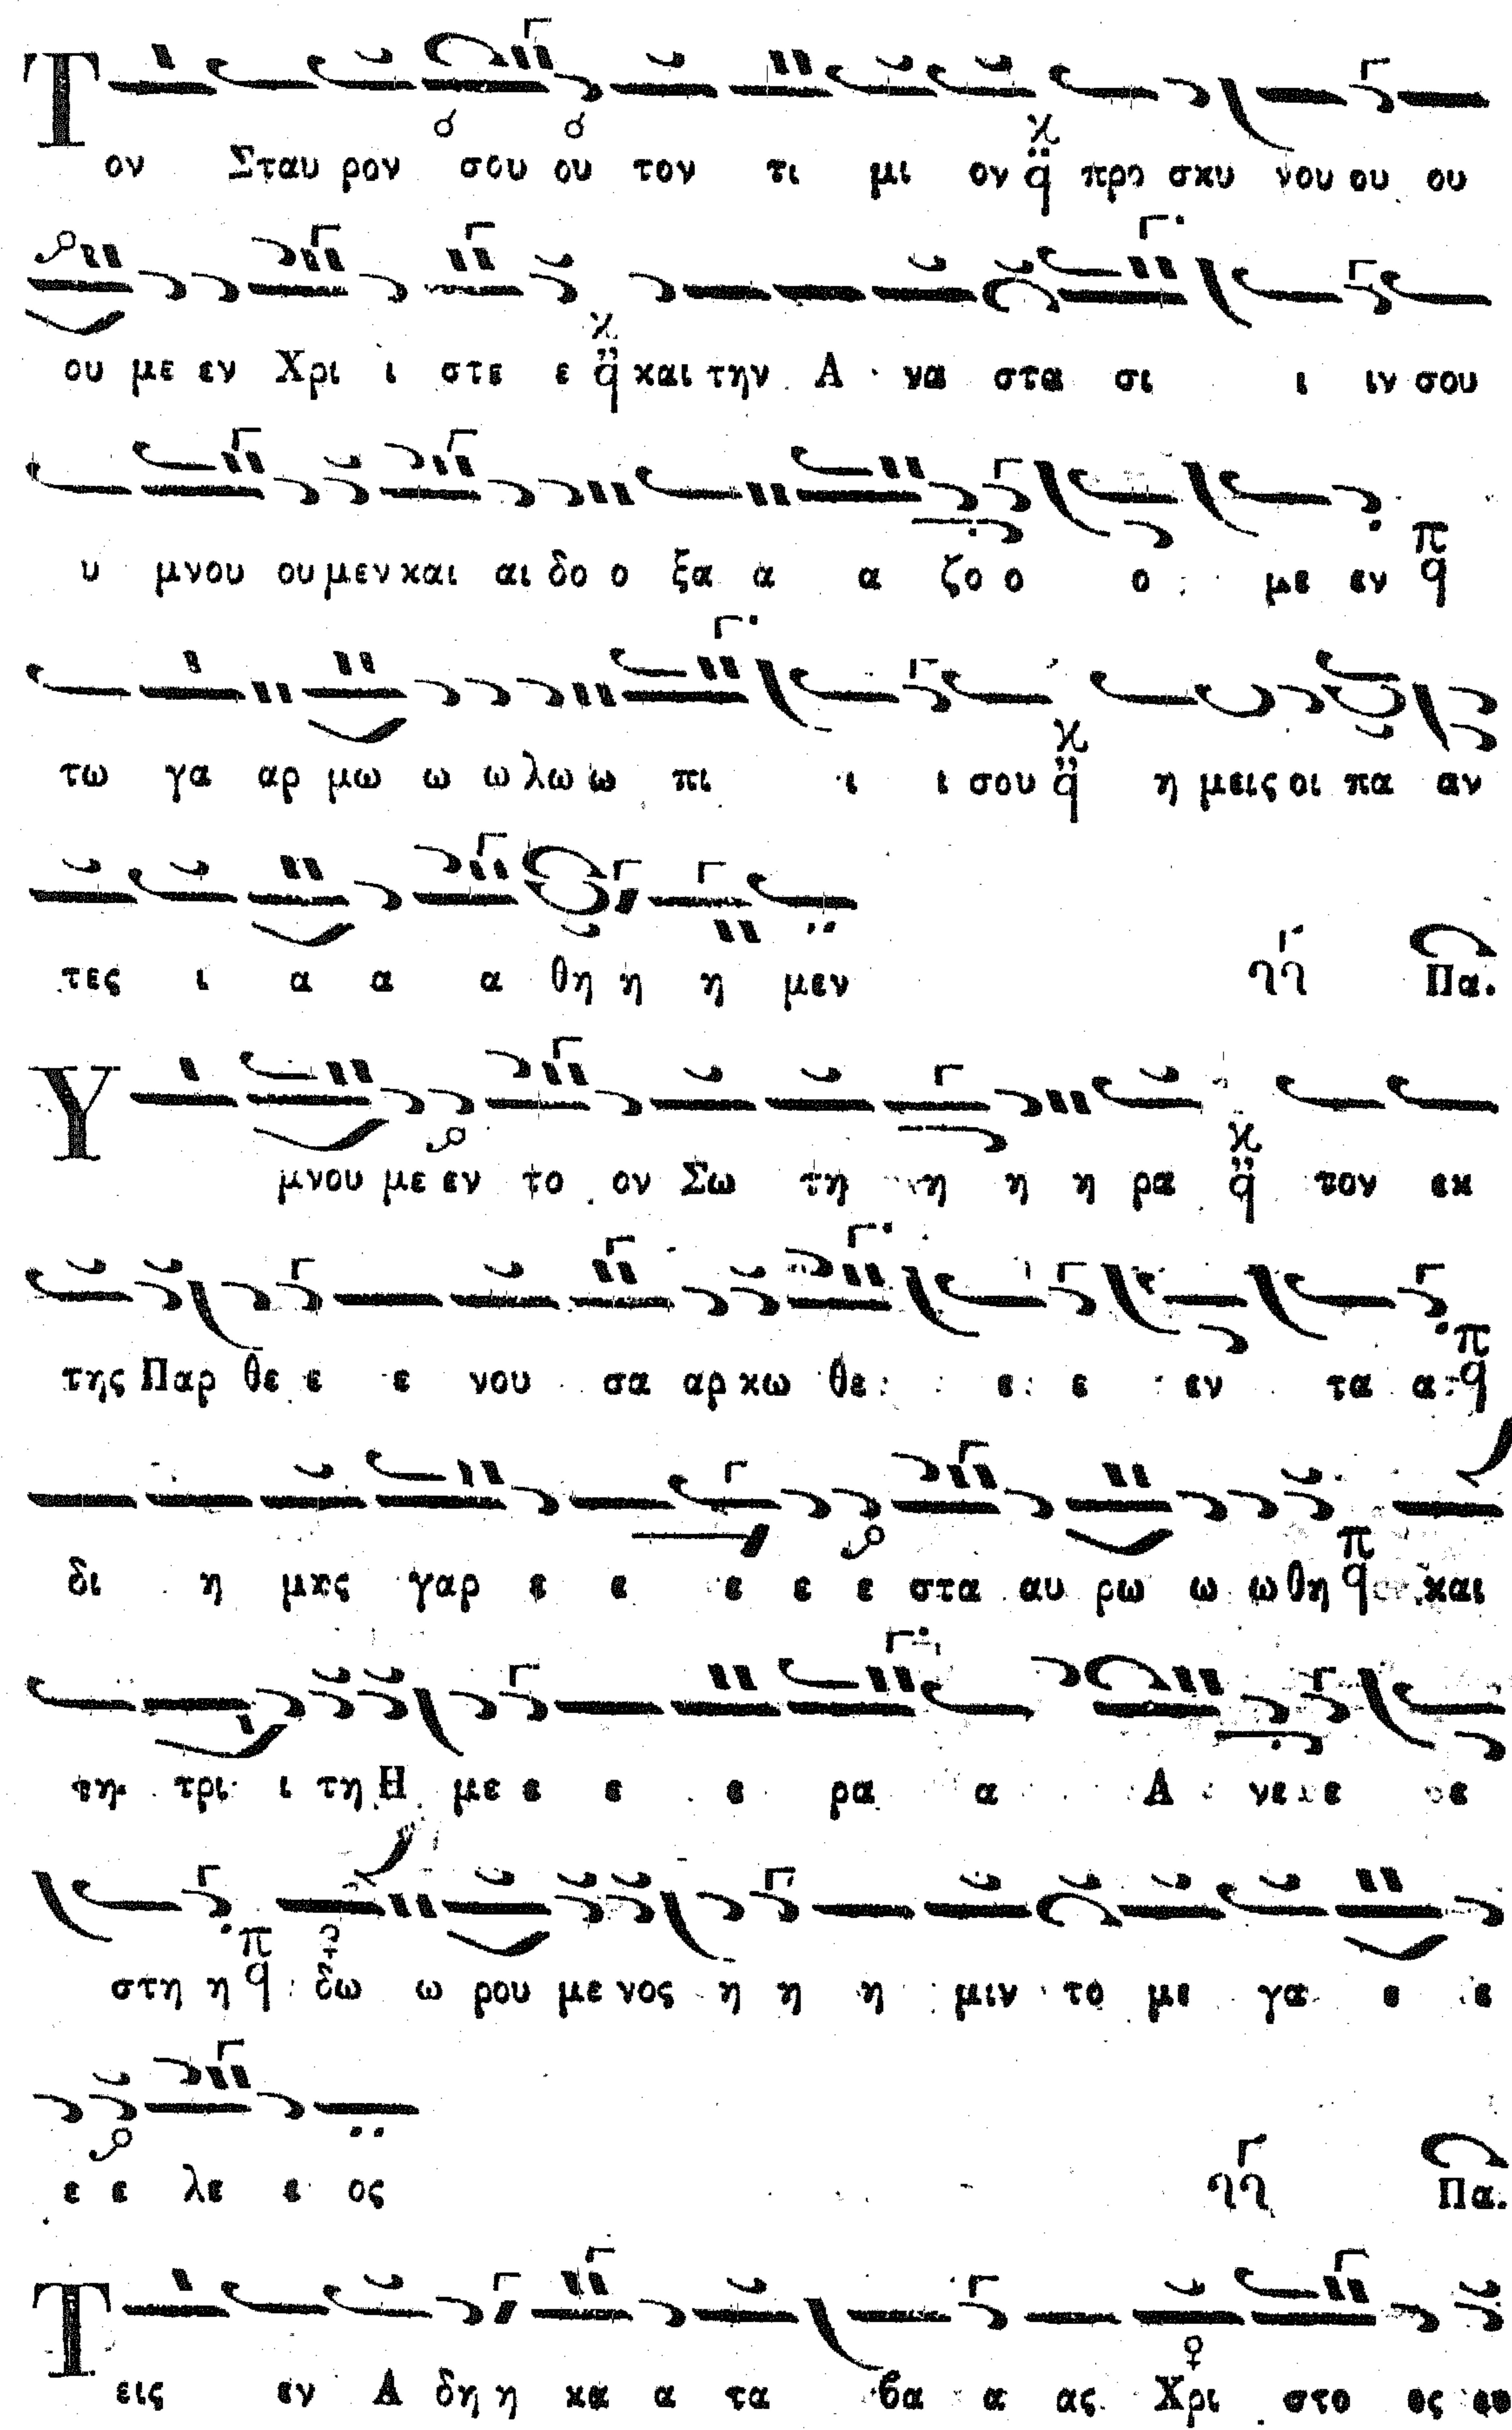 Τ
ον Σταυ ρον σου ου τον τι μι ον προ σκυ νου ου ου
ου με εν Χρι ι στε ε και την Α να στα σι ι ιν σου
υ μνου ου μεν και αι δο ο ξα α α ζο ο ο με εν
τω γα αρ μω ω ω λω ω πι ι ι σου η μεις οι πα αν
τες ι α α α θη η η μεν Πα.
Υ
μνου με εν το ον Σω τη η η η ρα τον εκ
της Παρ θε ε ε νου σα αρ κω θε ε ε εν τα α
δι η μας γαρ ε ε ε ε ε στα αυ ρω ω ω θη και
τη τρι ι τη Η με ε ε ε ρα α Α νε ε ε
στη η δω ω ρου με νος η η η μιν το με γα ε ε
ε ε λε ε ος Πα.
Τ
εις εν Α δη η κα α τα βα α ας Χρι στο ος